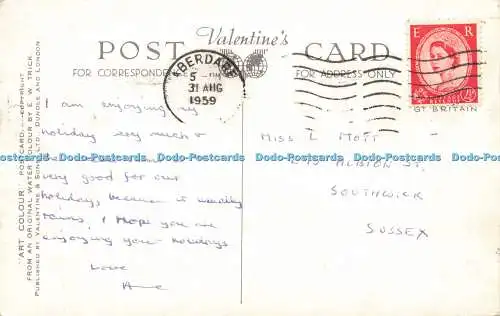 POST Valentine's CARD
FOR CORRESPONDENCE FOR ADDRESS ONLY
ABERDARE
5 - PM
31 AUG
1959
E R
2½
GT BRITAIN
"ART COLOUR" POSTCARD.—COPYRIGHT
FROM AN ORIGINAL WATER COLOUR BY E. W. TRICK
PUBLISHED BY VALENTINE & SONS, LTD., DUNDEE AND LONDON
I am enjoying my
holiday very much &
very good for our
holiday, because it
rains, I hope you are
enjoying your holidays
Love
MISS L MOTT
ALBION ST,
SOUTHWICK
SUSSEX
Dodo-Postcards Dodo-Postcards Dodo-Postcards Dodo-Postcards Dodo-Postcards